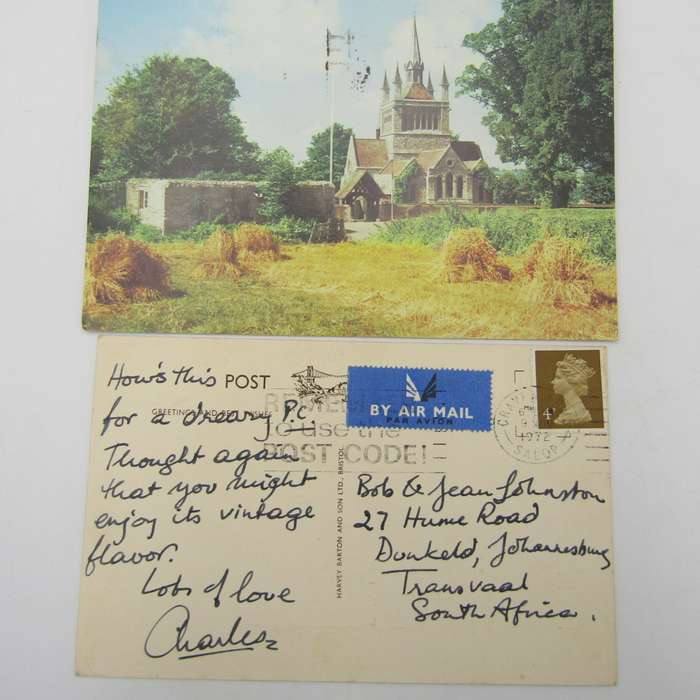 How's this POST
for a dreary P.C.
GREETINGS AND BEST WISHES
Thought again
that you might
enjoy its vintage
flavor.
Lots of love
Charles
HARVEY BARTON AND SON LTD., BRISTOL
REMEMBER
to use the
POST CODE!
BY AIR MAIL
PAR AVION
1972
SALOP
4
Bob & Jean Johnston
27 Hume Road
Dunkeld, Johannesburg
Transvaal
South Africa.